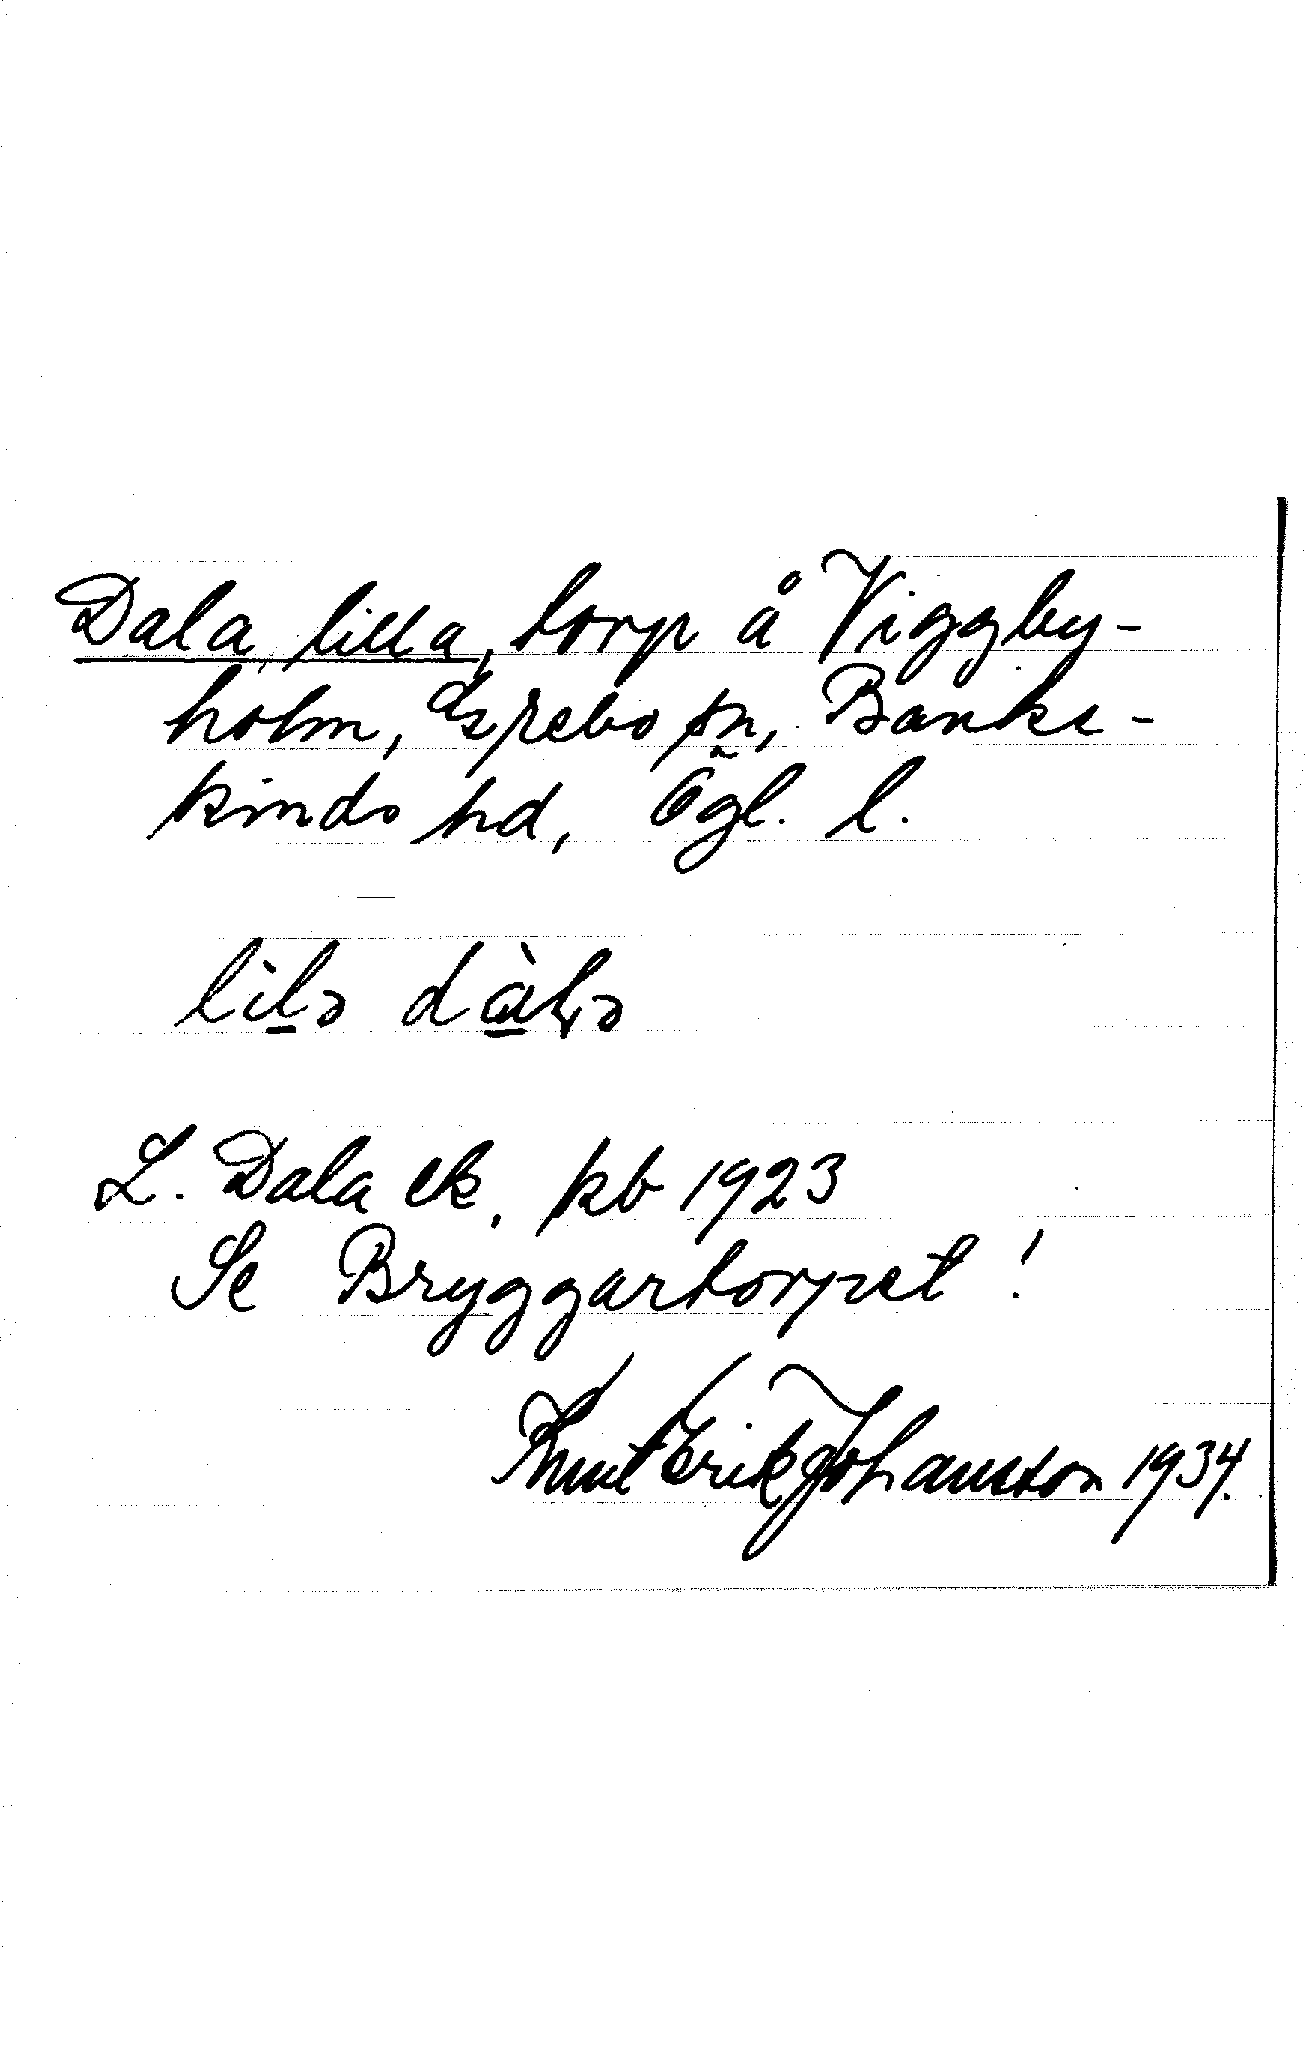 Dala, lilla, torp å Viggby-
holm, Grebo sn, Banke-
kinds hd, Ögl. l.
lìlə dàlə
L. Dala ek. kb 1923
Se Bryggartorpet!
Knut Erik Johansson 1934.